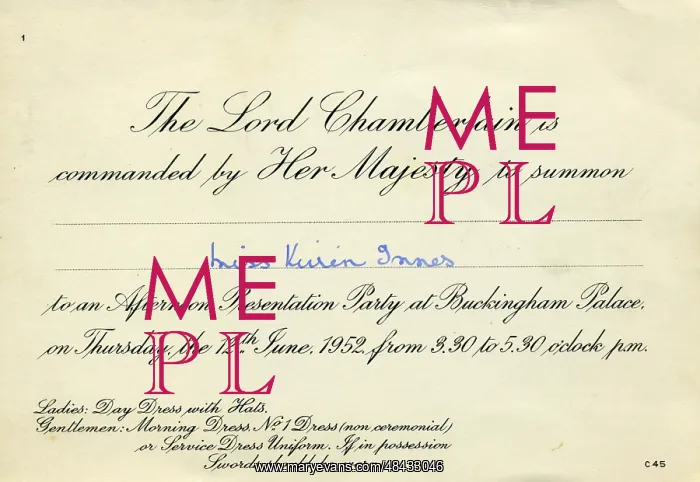 1
The Lord Chamberlain is
commanded by Her Majesty to summon
Miss Karen Innes
to an Afternoon Presentation Party at Buckingham Palace,
on Thursday, the 12th June, 1952, from 3.30 to 5.30 o'clock p.m.
Ladies: Day Dress with Hats.
Gentlemen: Morning Dress, No 1 Dress (non ceremonial)
or Service Dress Uniform. If in possession
Swords should
C45
ME
PL
ME
PL
www.maryevans.com/48433046